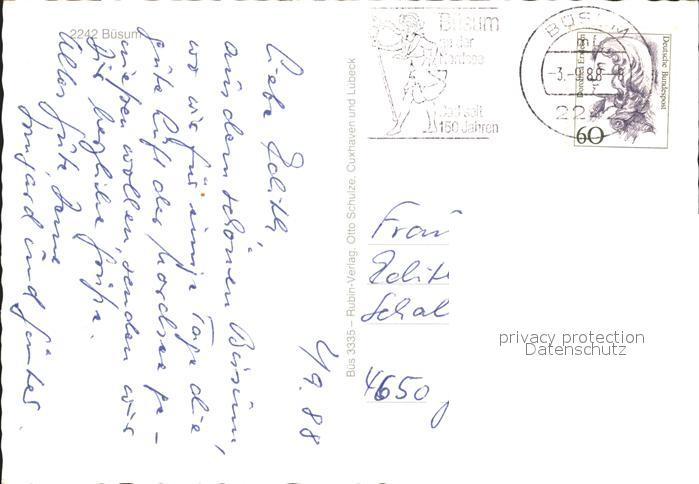 2242 Büsum
2/9. 88
Liebe Edith,
aus dem schönen Büsum,
wo wir für einige Tage die
gute Luft der Nordsee ge-
nießen wollen, senden wir
Dir herzliche Grüße.
Alles Gute, Deine
Irmgard und Günter.
Büs 3335 – Rubin-Verlag, Otto Schulze, Cuxhaven und Lübeck
Büsum
an der
Nordsee
Bad seit
150 Jahren
BÜSUM
-3.-9.88-
224
Deutsche Bundespost
60
Frau
Edit
Schal
4650
privacy protection
Datenschutz